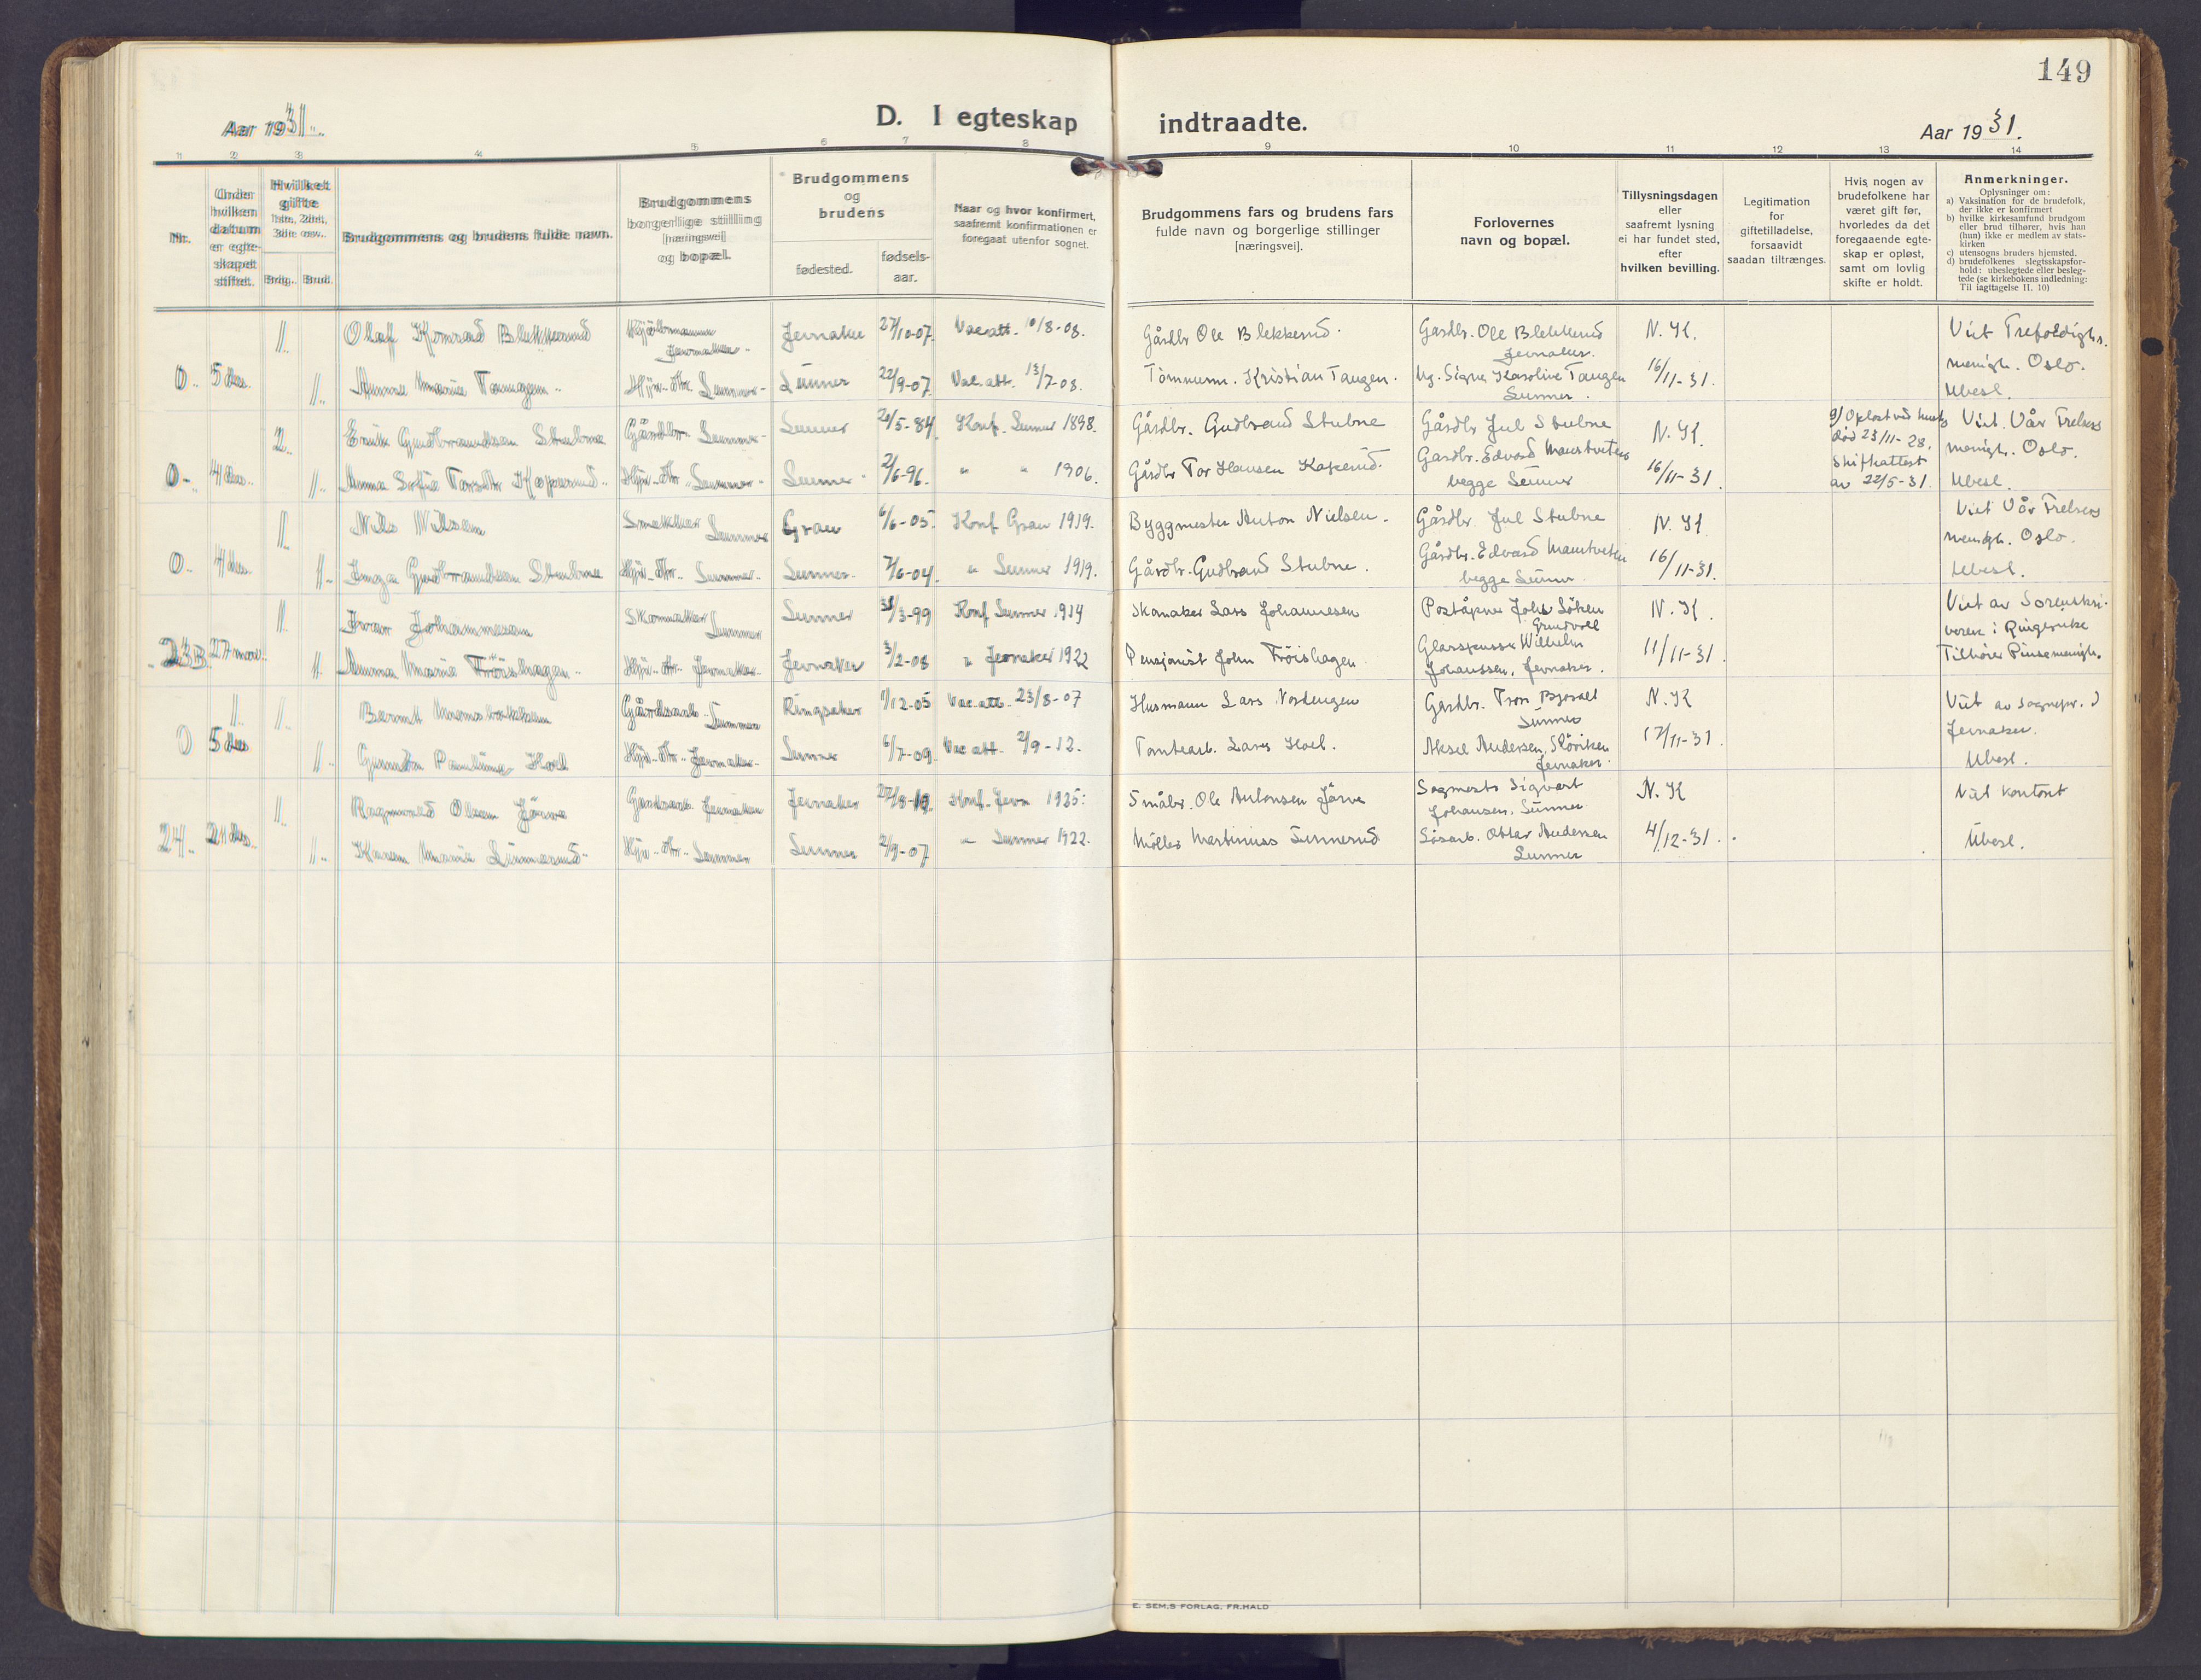 149
Aar 1931.
D. I egteskap indtraadte.
Aar 1931.
1 2 3 4 5 6 7 8 9 10 11 12 13 14
Nr.
Under hvilken datum er egteskapet stiftet.
Hvilket gifte 1ste, 2det, 3die osv.
Brudg. Brud.
Brudgommens og brudens fulde navn.
Brudgommens borgerlige stilling [næringsvei] og bopæl.
Brudgommens og brudens
fødested.
fødselsaar.
Naar og hvor konfirmert, saafremt konfirmationen er foregaat utenfor sognet.
Brudgommens fars og brudens fars fulde navn og borgerlige stillinger [næringsvei].
Forlovernes navn og bopæl.
Tillysningsdagen eller saafremt lysning ei har fundet sted, efter hvilken bevilling.
Legitimation for giftetilladelse, forsaavidt saadan tiltrænges.
Hvis nogen av brudefolkene har været gift før, hvorledes da det foregaaende egteskap er opløst, samt om lovlig skifte er holdt.
Anmerkninger.
Oplysninger om:
a) Vaksination for de brudefolk, der ikke er konfirmert
b) hvilke kirkesamfund brudgom eller brud tilhører, hvis han (hun) ikke er medlem av statskirken
c) utensogns bruders hjemsted.
d) brudefolkenes slegtsskapsforhold: ubeslegtede eller beslegtede (se kirkebokens indledning: Til iagttagelse II. 10)
1. Olaf Konrad Blekkerud Jevnaker Jevnaker 27/10-07. Vac.att. 10/8-08. Gårdbr Ole Blekkerud. Gardbr. Ole Blekkerud Jevnaker. N.K. Viet Trefoldigh.
0. 5 des. 1. Anna Marie Taugen Lunner Lunner 22/9-07. Vac.att. 13/7-08. Tömmerm. Kristian Taugen. Ug. Signe Karoline Taugen Lunner. 16/11-31. menigh. Oslo. Ubesl.
2. Erik Gudbrandsen Stubne Gårdbr. Lunner Lunner 20/5-84. Konf. Lunner 1898. Gårdbr. Gudbrand Stubne Gårdbr Jul Stubne N.K. død 23/11-28. Viet. Vår Frelsers
0. 4 des. 1. Anna Sofie Torsdtr Kopperud Lunner Lunner 2/6-96. " " 1906. Gårdbr Tor Hansen Gardbr. Edvard begge Lunner 16/11-31. Skifteattest av 22/5-31. menigh. Oslo. Ubesl.
1. Nils Nilsen Snekker Lunner Gran 6/6-05. Konf. Gran 1919. Byggmester Anton Nielsen. Gårdbr. Jul Stubne N.K. Viet Vår Frelsers
0. 4 des. 1. Inga Gudbrandsen Stubne Lunner. Lunner. 7/6-04. " Lunner 1919. Gårdbr. Gudbrand Stubne. Gårdbr. Edvard begge Lunner. 16/11-31. menigh. Oslo. Ubesl.
1. Ivar Johannesen Skomaker Lunner Lunner 31/3-99 Konf Lunner 1914 Skomaker Lars Johannesen Poståpner Grindvoll N.K. Viet av Sorenskriveren i Ringerike
23B. 27 nov. 1. Anna Marie Fröishagen Jevnaker Jevnaker 3/2-08 " Jevnaker 1922 Pensjonist John Fröishagen Wilhelm Johanssen, Jevnaker. 11/11-31. Tilhører Pinsemenigh.
1. Bernt Gårdsarb. Lunner Ringsaker 1/12-05 Vac.att. 23/8-07 Husmann Lars Nordengen Gardbr. Lunner N.K Viet av sognepr. i
0 5 des 1. Pauline Hoel Jevnaker Lunner 6/7-09. Vac att. 2/9-12. Tomtearb. Lars Hoel. Aksel Andersen, Jevnaker. 17/11-31. Jevnaker. Ubesl.
1. Ragnvald Olsen Järve Gardsarb. Jevnaker Jevnaker Konf. Jevn 1925. Småbr. Ole Antonsen Järve Sagmester Sigvart Johansen. Lunner N.K Viet kontoret
24. 21 des. 1. Karen Marie Linnerud Lunner Lunner 2/9-07 " Lunner 1922. Möller Martinius Linnerud Ottar Andersen Lunner 4/12-31. Ubesl.
E. SEM,S FORLAG, FR.HALD